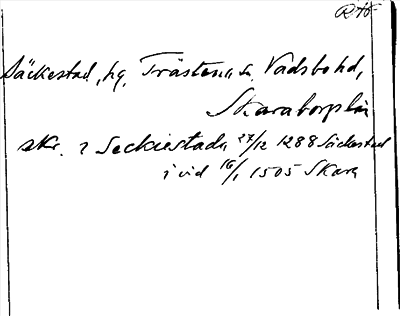 RAÄ
Säckestad, hg, Trästena sn, Vadsbo hd,
Skaraborgs län
skr. i Seckiestadu 27/12 1288 Säckestad
i vid 16/1 1505 Skara